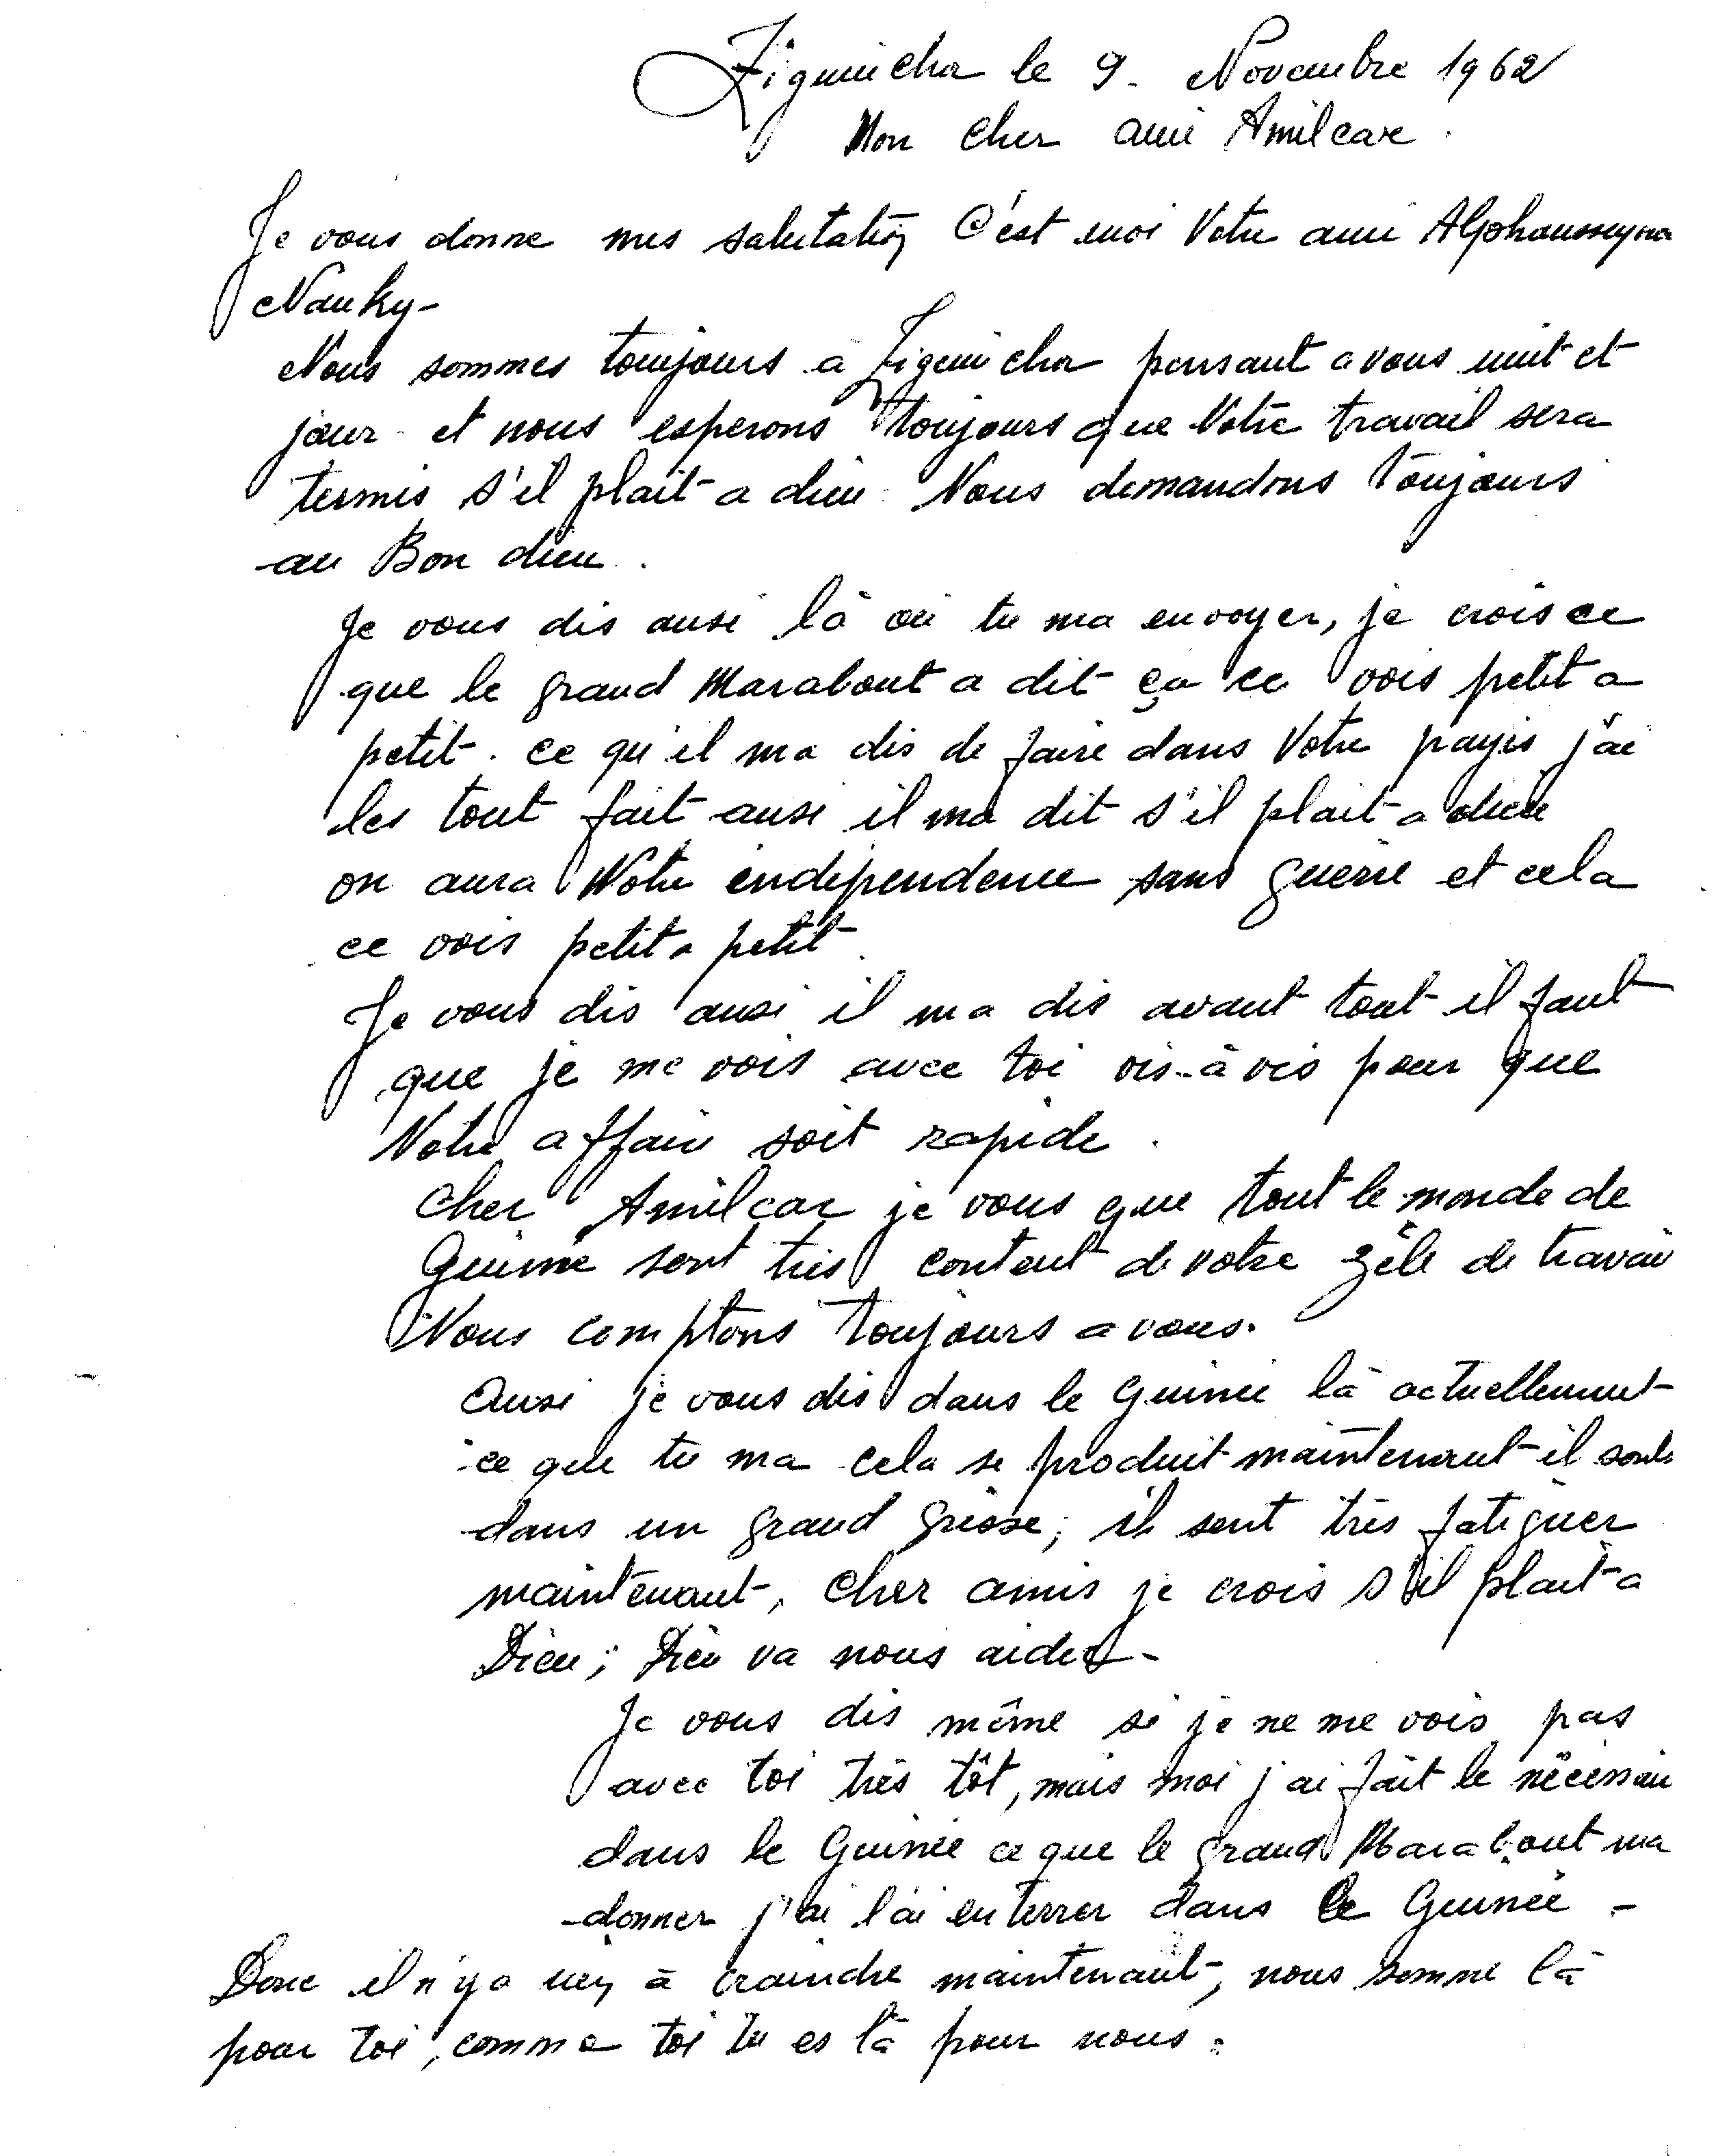 Ziguinchor le 9 - Novembre 1962
Mon cher ami Amilcar.
Je vous donne mes salutation C'est moi Votre ami Alphousseyna
Nanky -
Nous sommes toujours à Ziguinchor pensant a vous nuit et
jour - et nous esperons toujours que Votre travail sera
termis s'il plait a dieu. Nous demandons toujours
au Bon dieu.
Je vous dis ausi là où tu ma envoyer, je crois ce
que le grand Marabout a dit ça ce vois petit a
petit. ce qu'il ma dis de faire dans Votre payis j'ai
les tout fait ausi il ma dit s'il plait a dieu
on aura Notre independence sans guerre et cela
ce vois petit a petit.
Je vous dis ausi il ma dis avant tout il faut
que je me vois avec toi vis-à vis pour que
Notre affair soit rapide.
Cher Amilcar je vous que tout le monde de
Guinné sont très content de votre zèle de travai
Nous comptons toujours a vous.
Ausi je vous dis dans le Guinée là actuellement
ce que tu ma cela se produit maintenant il sont
dans un grand grisse; ils sont très fatiguer
maintenant, cher amis je crois s'il plait a
Dieu; Dieu va nous aider -
Je vous dis même si je ne me vois pas
avec toi très tôt, mais moi j'ai fait le nécessai
dans le Guinée ce que le grand Marabout ma
donner j'ai l'ai enterrer dans le Guinée -
Donc il n'y a rien à craindre maintenant, nous somme là
pour toi, comme toi tu es là pour nous.